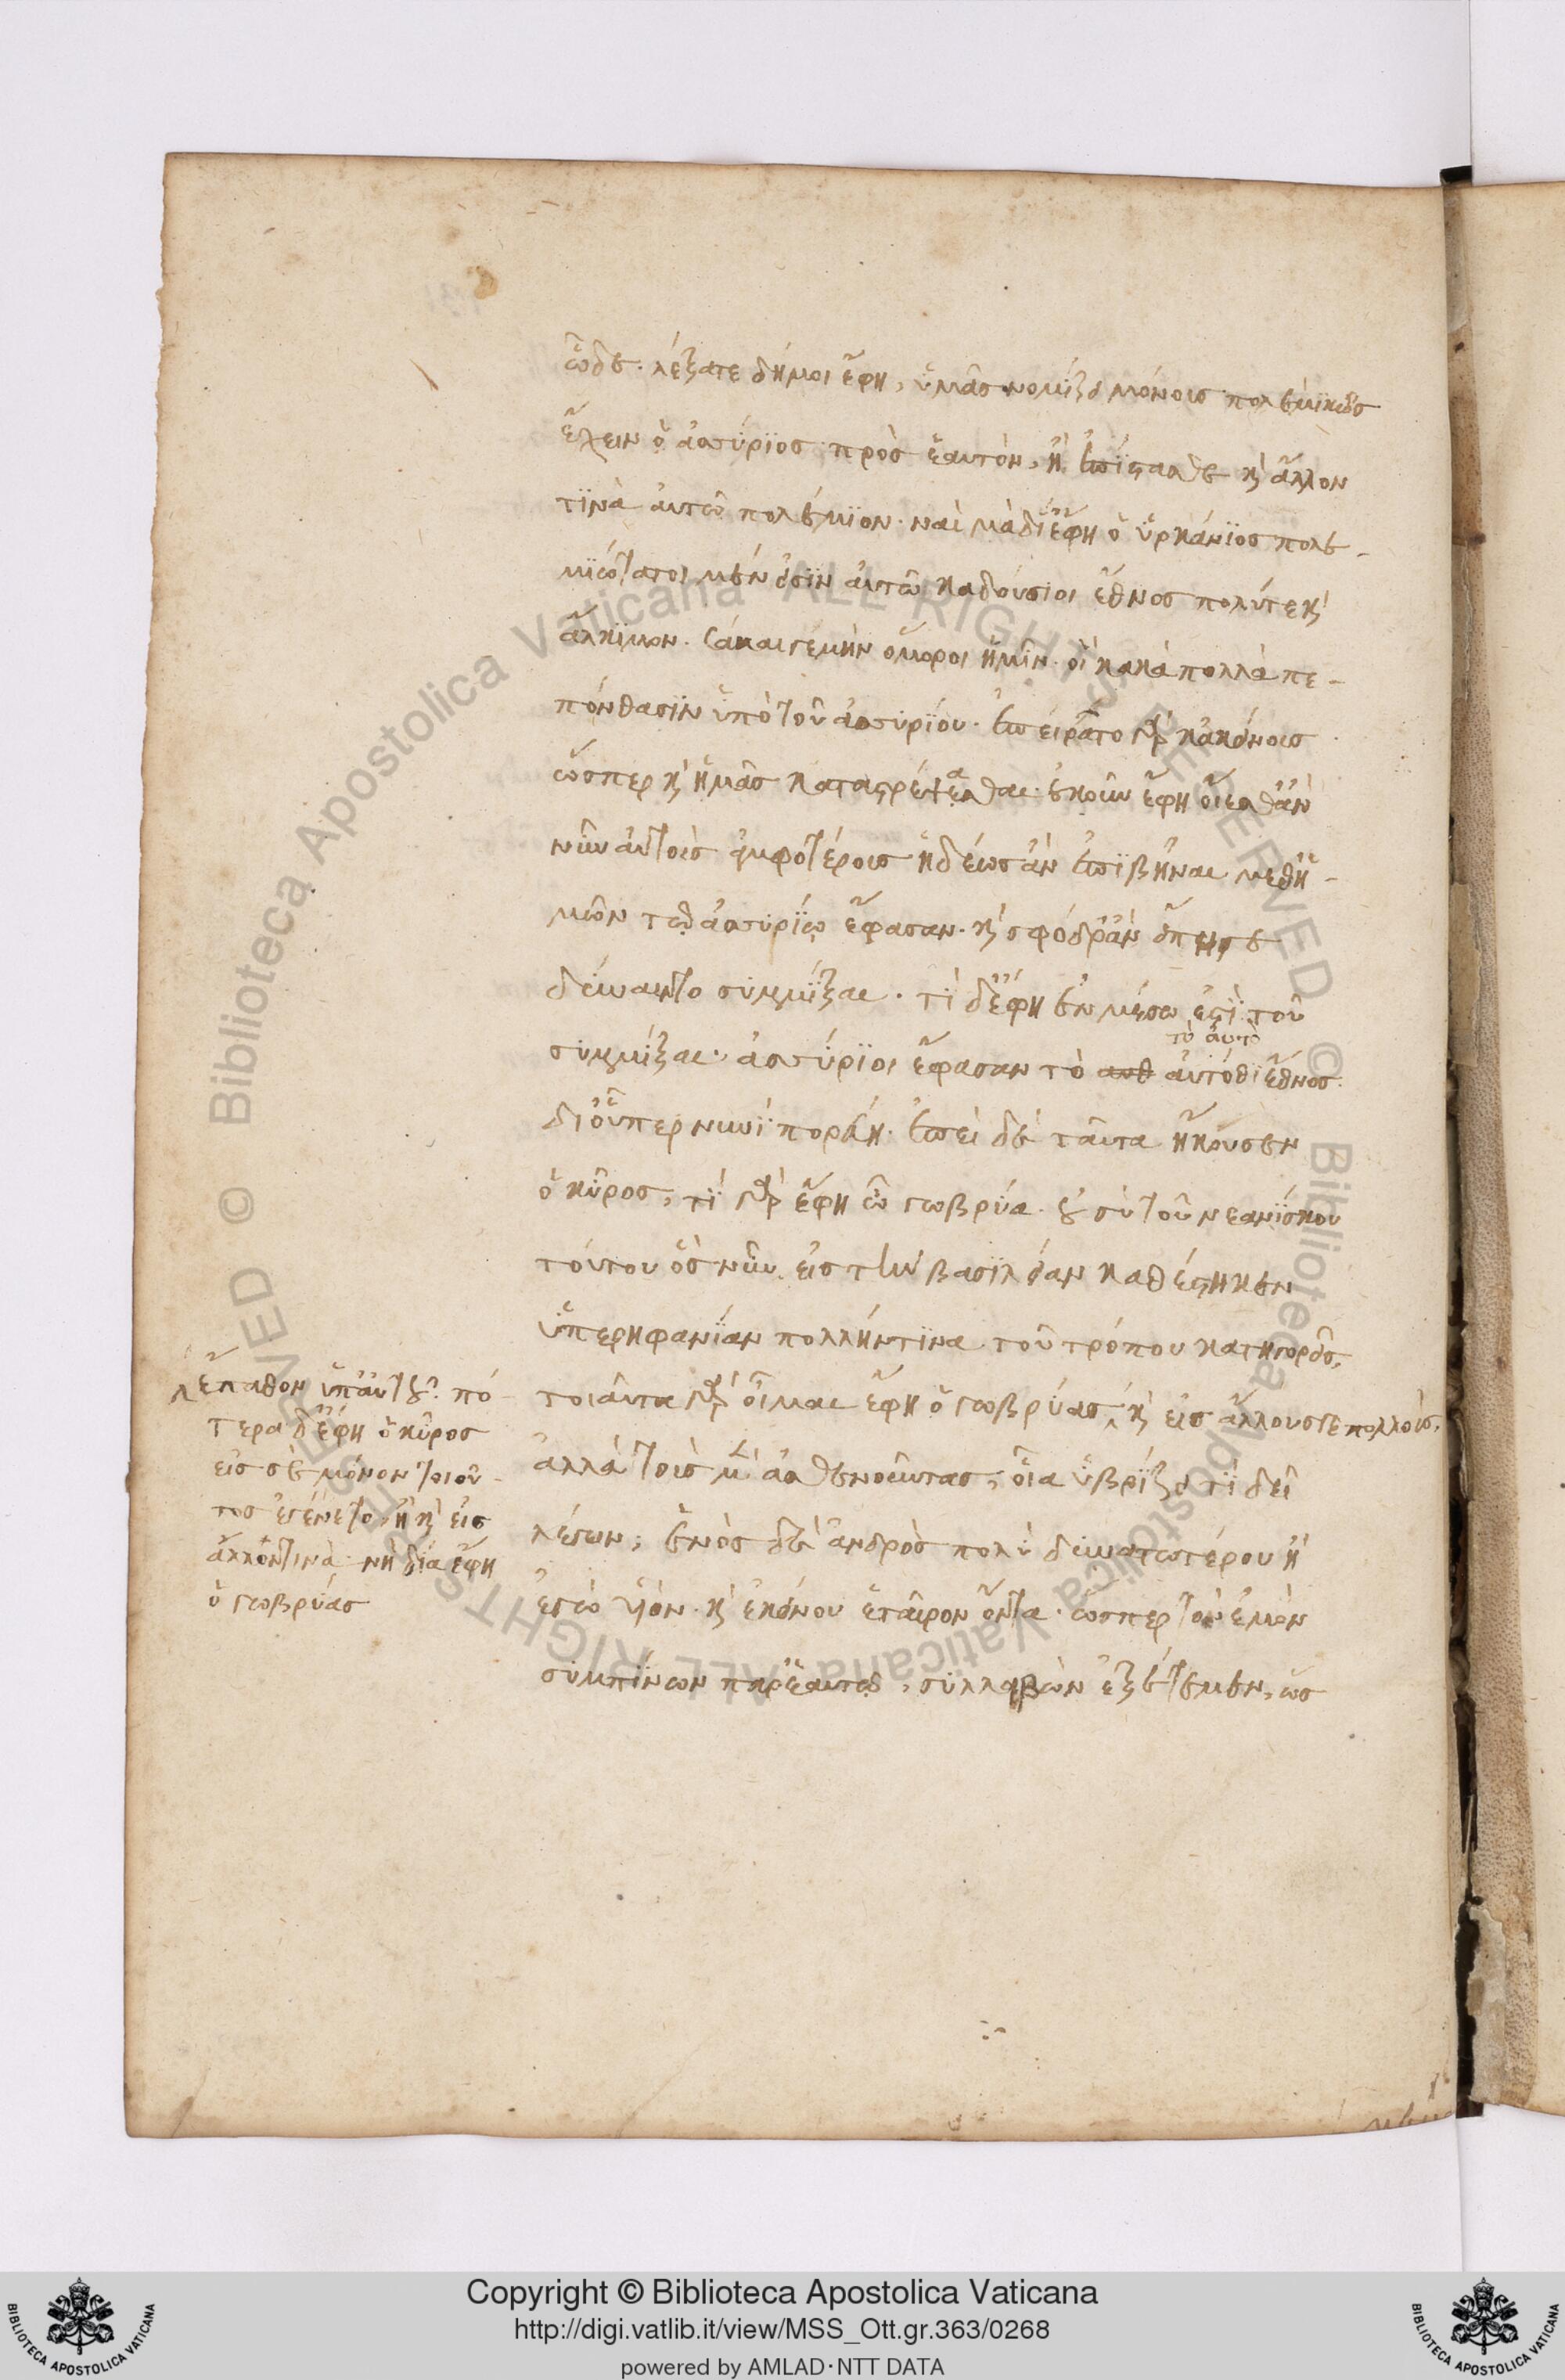 ὧδε. λέξατε δήμοι ἔφη, ὑμᾶς νομίζει μόνους πολεμικῶς
ἔχειν ὁ ἀσσύριος πρὸς ἑαυτὸν, ἢ ἐπίστασθε καὶ ἄλλον
τινὰ αὐτῶ πολέμιον. ναὶ μὰ δί ἔφη ὁ ὑρκάνιος πολε-
μιώτατοι μέν εἰσιν αὐτῶ καδούσιοι ἔθνος πολύ τε καὶ
ἄλκιμον. σάκαι γε μὴν ὅμοροι ἡμῖν. οἳ κακὰ πολλὰ πε-
πόνθασιν ὑπὸ τοῦ ἀσσυρίου. ἐπειρᾶτο γὰρ κἀκείνους
ὥσπερ καὶ ἡμᾶς καταστρέψασθαι. οὐκοῦν ἔφη οἴεσθ ἂν
νῦν αὐτοὺς ἀμφοτέρους ἡδέως ἂν ἐπιβῆναι μεθ ἡ-
μῶν τῶ ἀσσυρίω ἔφασαν. καὶ σφόδρ ἂν εἴ πῃ γε
δύναιντο συμμίξαι. τί δ ἔφη ἐν μέσω ἐστὶ τοῦ
συμμίξαι. ἀσσύριοι ἔφασαν τὸ αυθ αὐτόθι ἔθνος.
τὸ αὐτὸ
δι οὗπερ νυνὶ πορεύη. ἐπεὶ δὲ ταῦτα ἤκουσεν
ὁ κῦρος, τί γὰρ ἔφη ὦ γωβρύα. οὐ σὺ τοῦ νεανίσκου
τούτου ὃς νῦν εἰς τὴν βασιλείαν καθέστηκεν
ὑπερηφανίαν πολλήν τινα τοῦ τρόπου κατηγορεῖς,
τοιαῦτα γὰρ οἶμαι ἔφη ὁ γωβρύας, καὶ εἰς ἄλλους γε πολλοὺς.
ἀλλὰ τοὺς μὲν ἀσθενοῦντας, οἷα ὑβρίζει τί δεῖ
λέγειν; ἑνὸς δὲ ἀνδρὸς πολὺ δυνατωτέρου ἢ
ἐγὼ υἱόν. καὶ ἐκείνου ἑταῖρον ὄντα. ὥσπερ τὸν ἐμὸν
συμπίνων παρ ἑαυτῶ, συλλαβὼν ἐξέτεμεν, ὡς
ἔπαθον ὑπ αὐτοῦ. πό-
τερα δ ἔφη ὁ κῦρος
εἰς σὲ μόνον τοιοῦ-
τος ἐγένετο, ἢ καὶ εἰς
ἄλλόν τινὰ νὴ δία ἔφη
ὁ γωβρύας
Copyright © Biblioteca Apostolica Vaticana
http://digi.vatlib.it/view/MSS_Ott.gr.363/0268
powered by AMLAD·NTT DATA